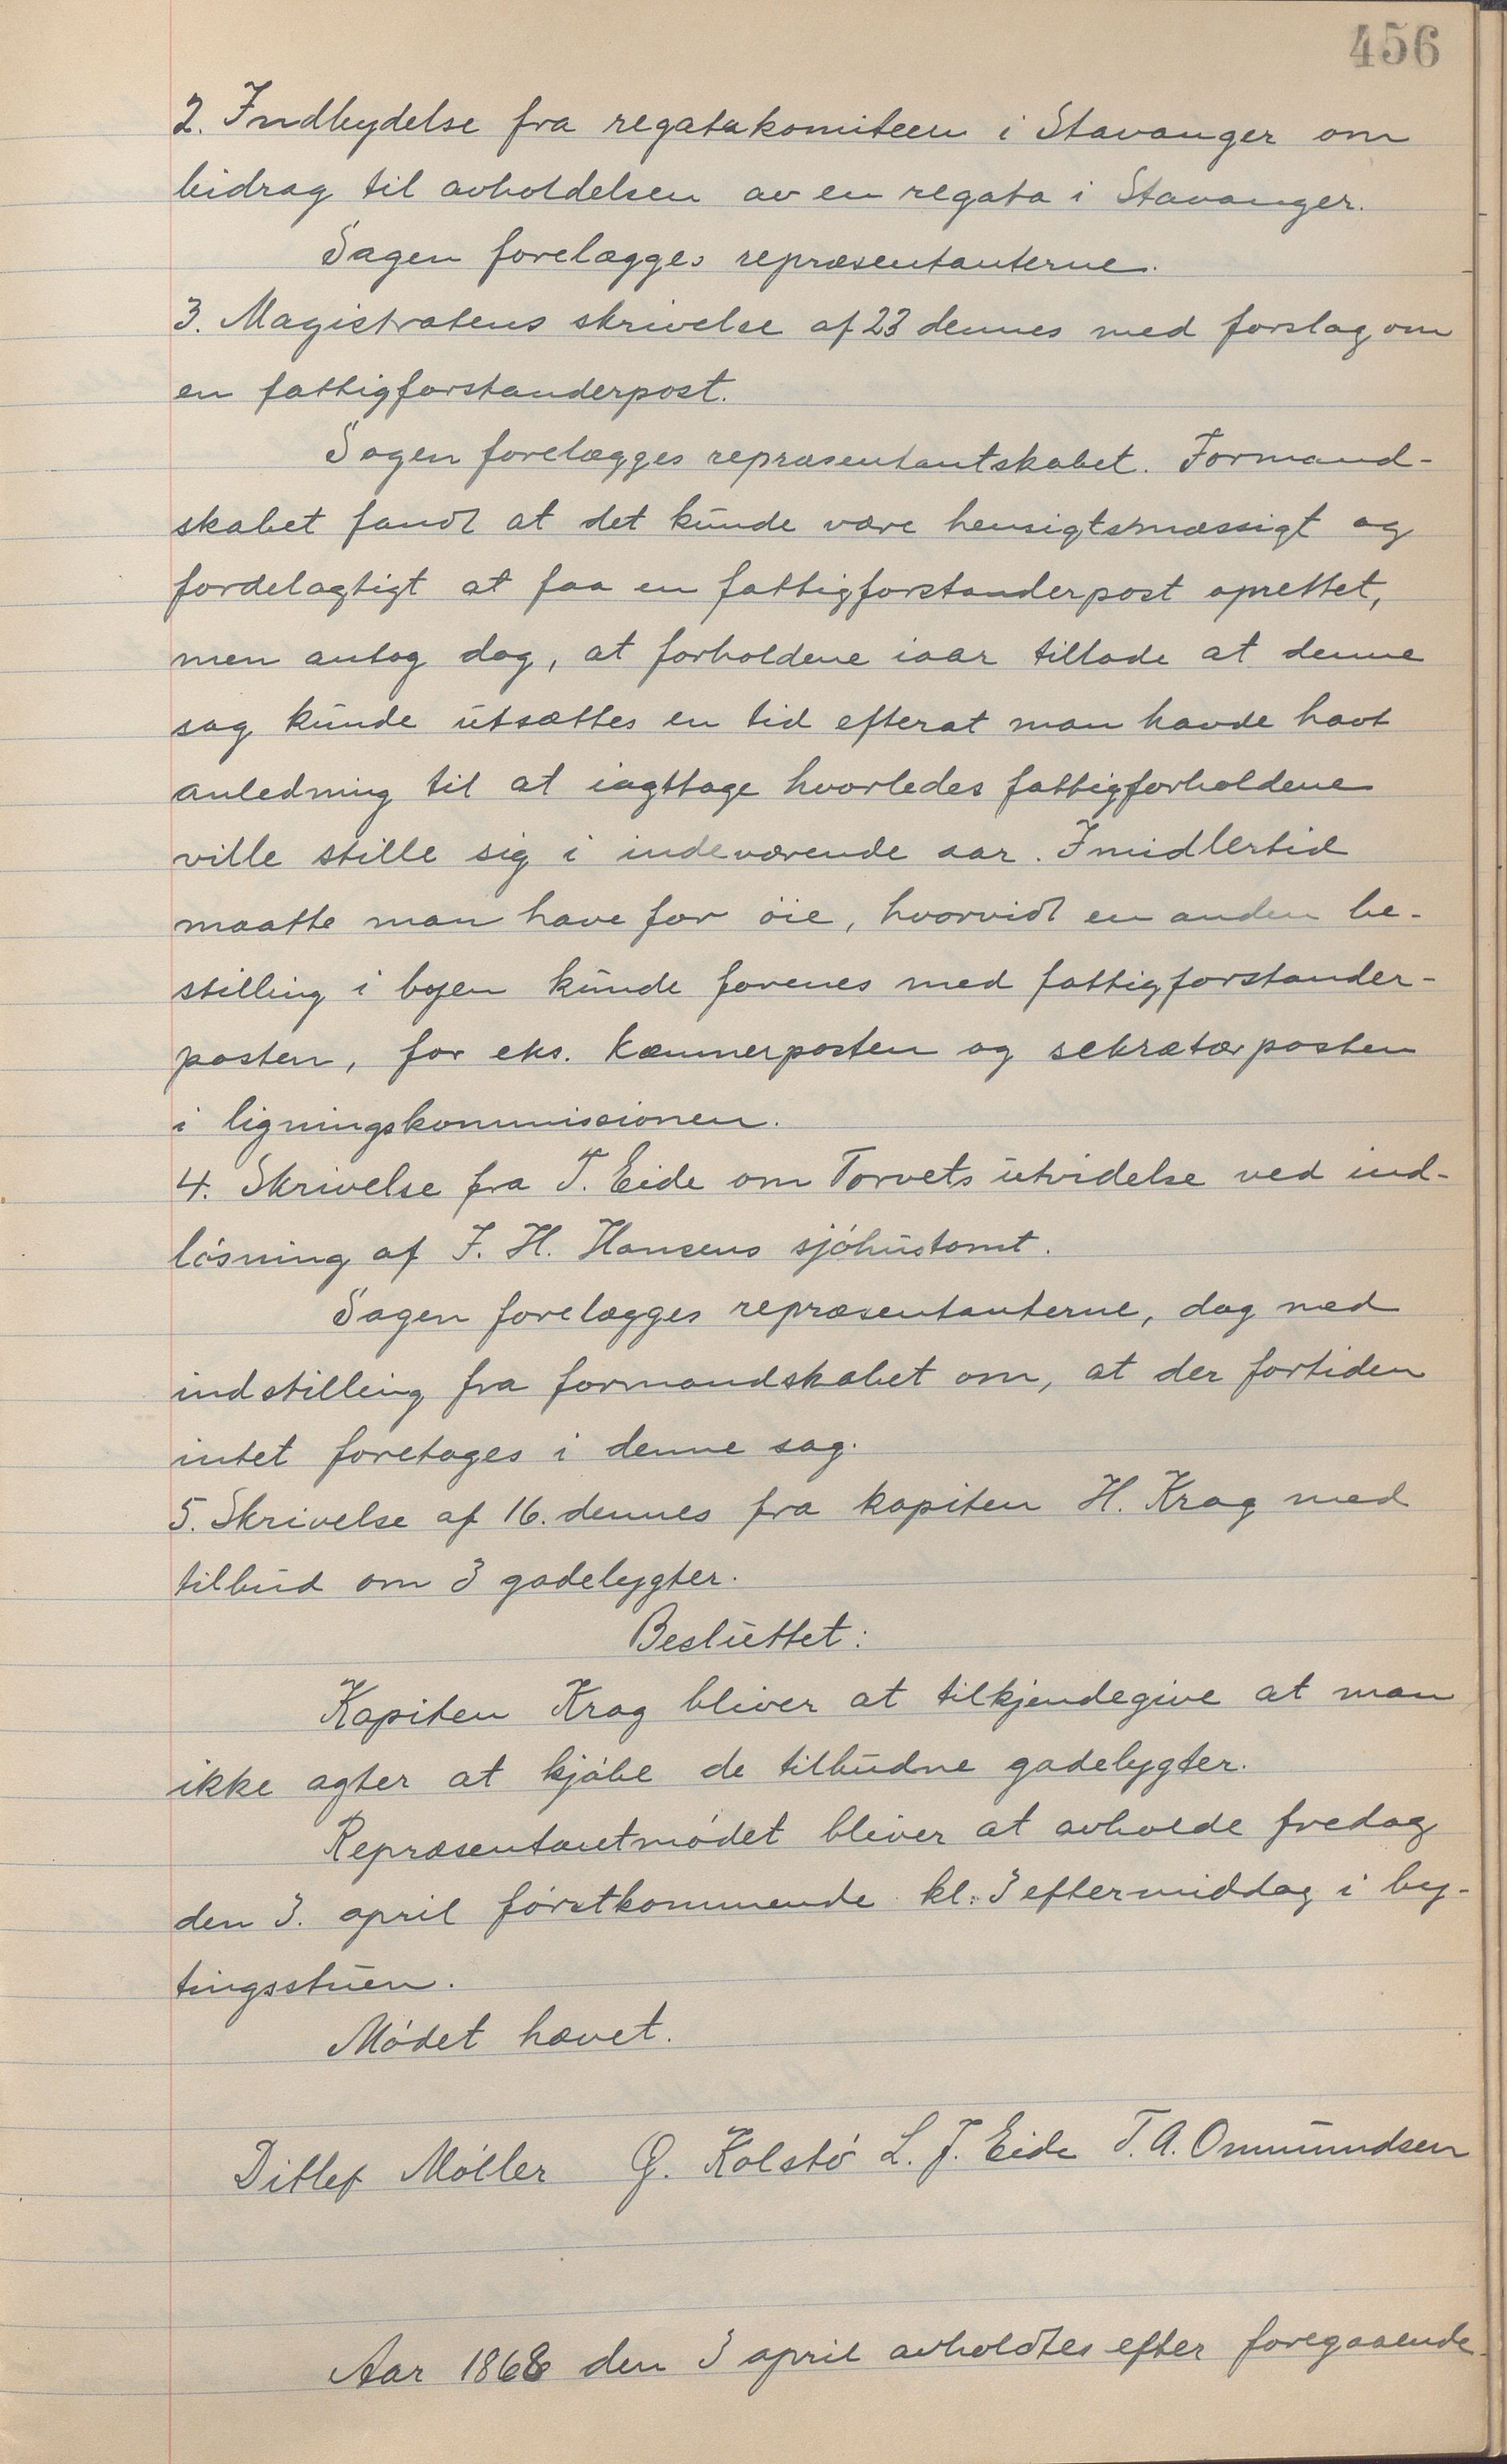 456
2. Indbydelse fra regatakomiteen i Stavanger om
bidrag til avholdelsen av en regata i Stavanger.
Sagen forelægges repræsentanterne.
3. Magistratens skrivelse af 23 dennes med forslag om
en fattigforstanderpost.
Sagen forelægges repræsentantskabet. Formand-
skabet fandt at det kunde være hensigtsmæssigt og
fordelagtigt at faa en fattigforstanderpost oprettet,
men antog dog, at forholdene iaar tillode at denne
sag kunde utsættes en tid efterat man havde havt
anledning til at iagttage hvorledes fattigforholdene
ville stille sig i indeværende aar. Imidlertid
maatte man have for öie, hvorvidt en anden be-
stilling i byen kunde forenes med fattigforstander-
posten, for eks. kæmnerposten og sekretærposten
i ligningskommissionen.
4. Skrivelse fra T. Eide om Torvets utvidelse ved ind-
lösning af J. H. Hansens sjöhustomt.
Sagen forelægges repræsentanterne, dog med
indstilling fra formandskabet om, at der fortiden
intet foretages i denne sag.
5. Skrivelse af 16. dennes fra kapiten H. Krag med
tilbud om 3 gadelygter.
Besluttet:
Kapiten Krag bliver at tilkjendegive at man
ikke agter at kjöbe de tilbudne gadelygter.
Repræsentantmödet bliver at avholde fredag
den 3. april förstkommende kl. 3 eftermiddag i by-
tingsstuen.
Mödet hævet.
Ditlef Möller G. Kolstö L. J. Eide T. A. Ommundsen
Aar 1868 den 3 april avholdtes efter foregaaende